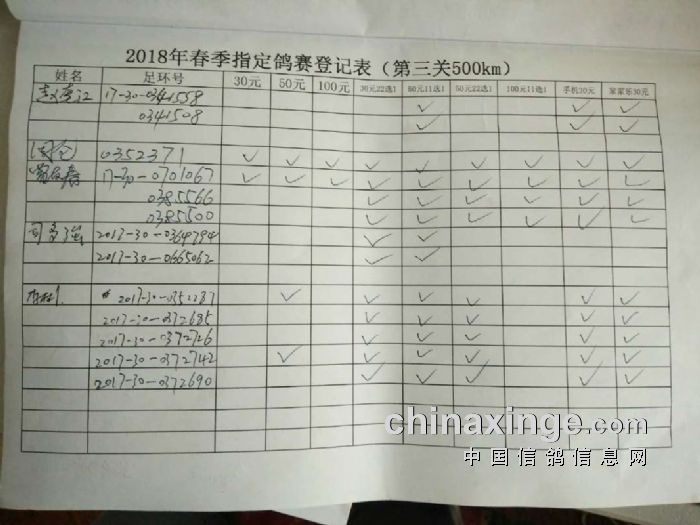 2018年春季指定鸽赛登记表（第三关500km）
姓名 足环号 30元 50元 100元 30元22选1 50元11选1 50元22选1 100元11选1 手机30元 家家乐30元
17-30-0341558 ✓ ✓ ✓
0341508 ✓ ✓ ✓
0352371 ✓ ✓ ✓ ✓ ✓ ✓ ✓ ✓ ✓
17-30-0701067 ✓ ✓ ✓ ✓ ✓ ✓ ✓ ✓ ✓
0385566 ✓ ✓ ✓ ✓ ✓ ✓
0385500 ✓ ✓ ✓ ✓ ✓ ✓
2017-30-0364794 ✓ ✓
2017-30-0665062 ✓ ✓
2017-30-0372685 ✓ ✓ ✓ ✓ ✓
2017-30-0372726 ✓ ✓ ✓ ✓ ✓
2017-30-0372742 ✓ ✓ ✓ ✓ ✓ ✓
2017-30-0372690 ✓ ✓ ✓ ✓ ✓
chinaxinge.com
中国信鸽信息网